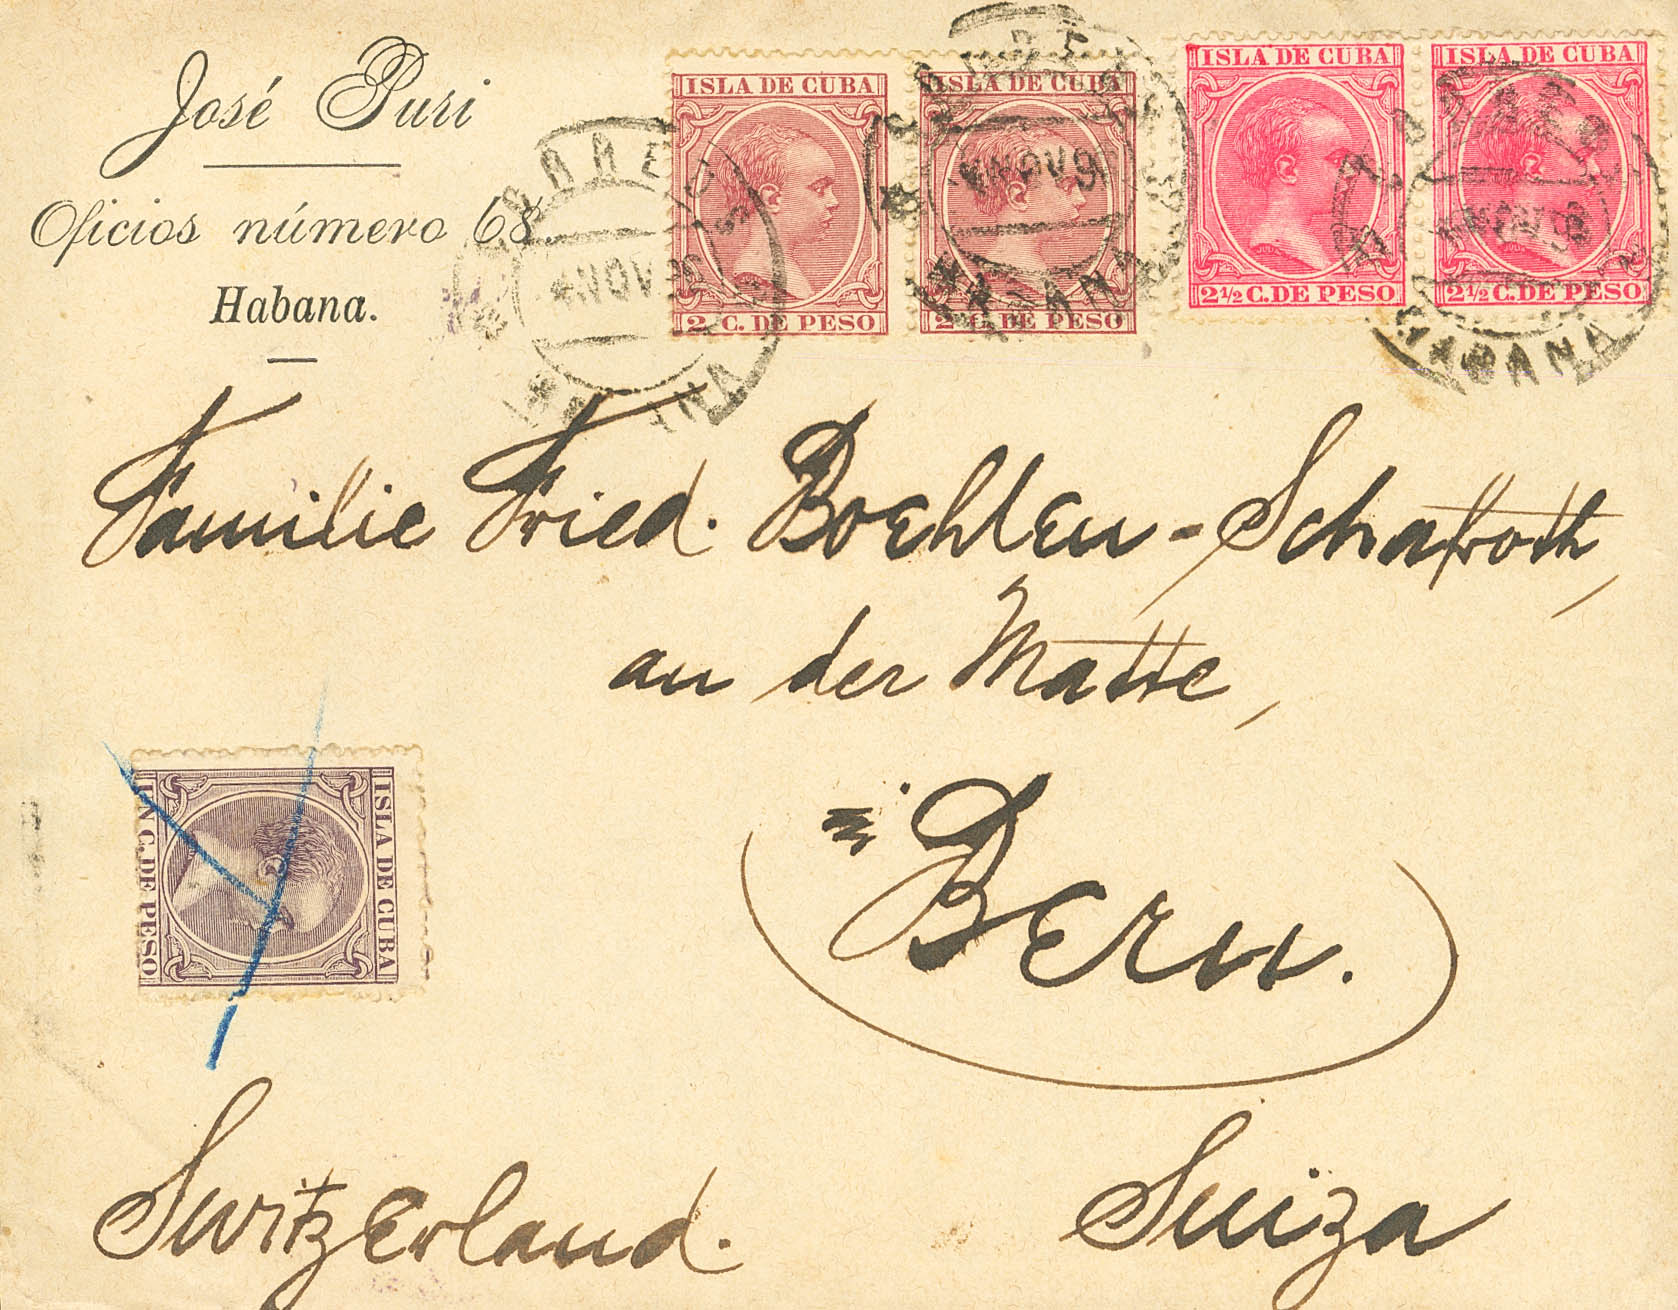 José Puri
Oficios número 68
Habana.
ISLA DE CUBA
2 C. DE PESO
ISLA DE CUBA
2 C. DE PESO
ISLA DE CUBA
2½ C. DE PESO
ISLA DE CUBA
2½ C. DE PESO
NOV
HABANA
Familie Fried. Boehlen-Schafroth,
an der Matte,
Bern.
ISLA DE CUBA
UN C. DE PESO
Switzerland.
Suiza